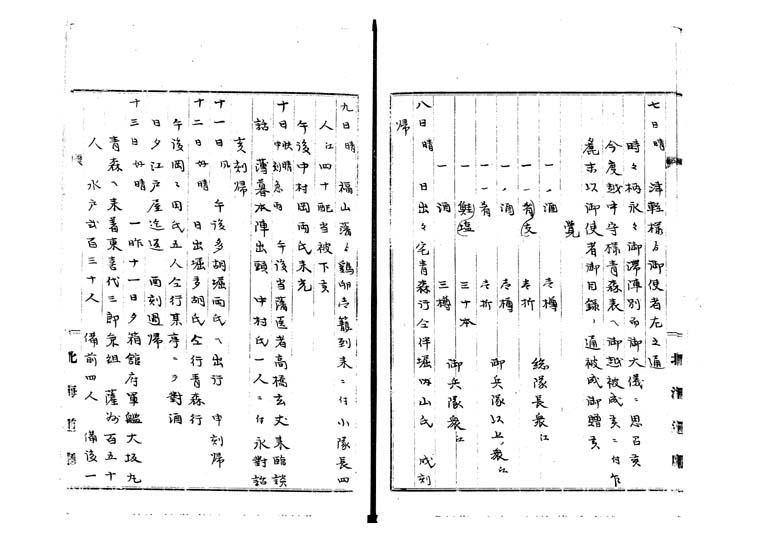 七日晴 津軽様ゟ御使者左之通
時々柄永々御滞陣別而御大儀ニ思召亥
今度越中守様青森表ヘ御越被成亥ニ付乍
麁末以御使者御目録之通被成御贈亥
覚
一、酒 壱樽 総隊長衆江
一、肴 壱折
一、酒 壱樽 御兵隊以上衆江
一、肴 壱折
一 塩 三十本 御兵隊衆江
一 酒 三樽
八日 晴 日出ゟ宅青森行仝伴堀内山氏 戌刻
帰
九日 晴 福山藩ゟ鶏卵壱籠到来ニ付小隊長四
人江四十配当被下亥
午後中村岡両氏来光
十日 午後当藩医者高橋玄丈来臨談
話 薄暮本陣出頭 中村氏一人ニ付永對話
亥刻帰
十一日 風 午後多胡堀両氏ヘ出行 申刻帰
十二日 好晴 日出堀多胡氏仝行青森行
午後岡ゟ田氏五人仝行某亭ニ夕對酒
日夕江戸屋迄返 酉刻過帰
十三日好晴 一昨十一日夕箱館府軍艦大坂丸
青森ヘ来着東喜代三郎余組 薩州百五十
人 水戸弐百三十人 備前四人 備後一
北海道